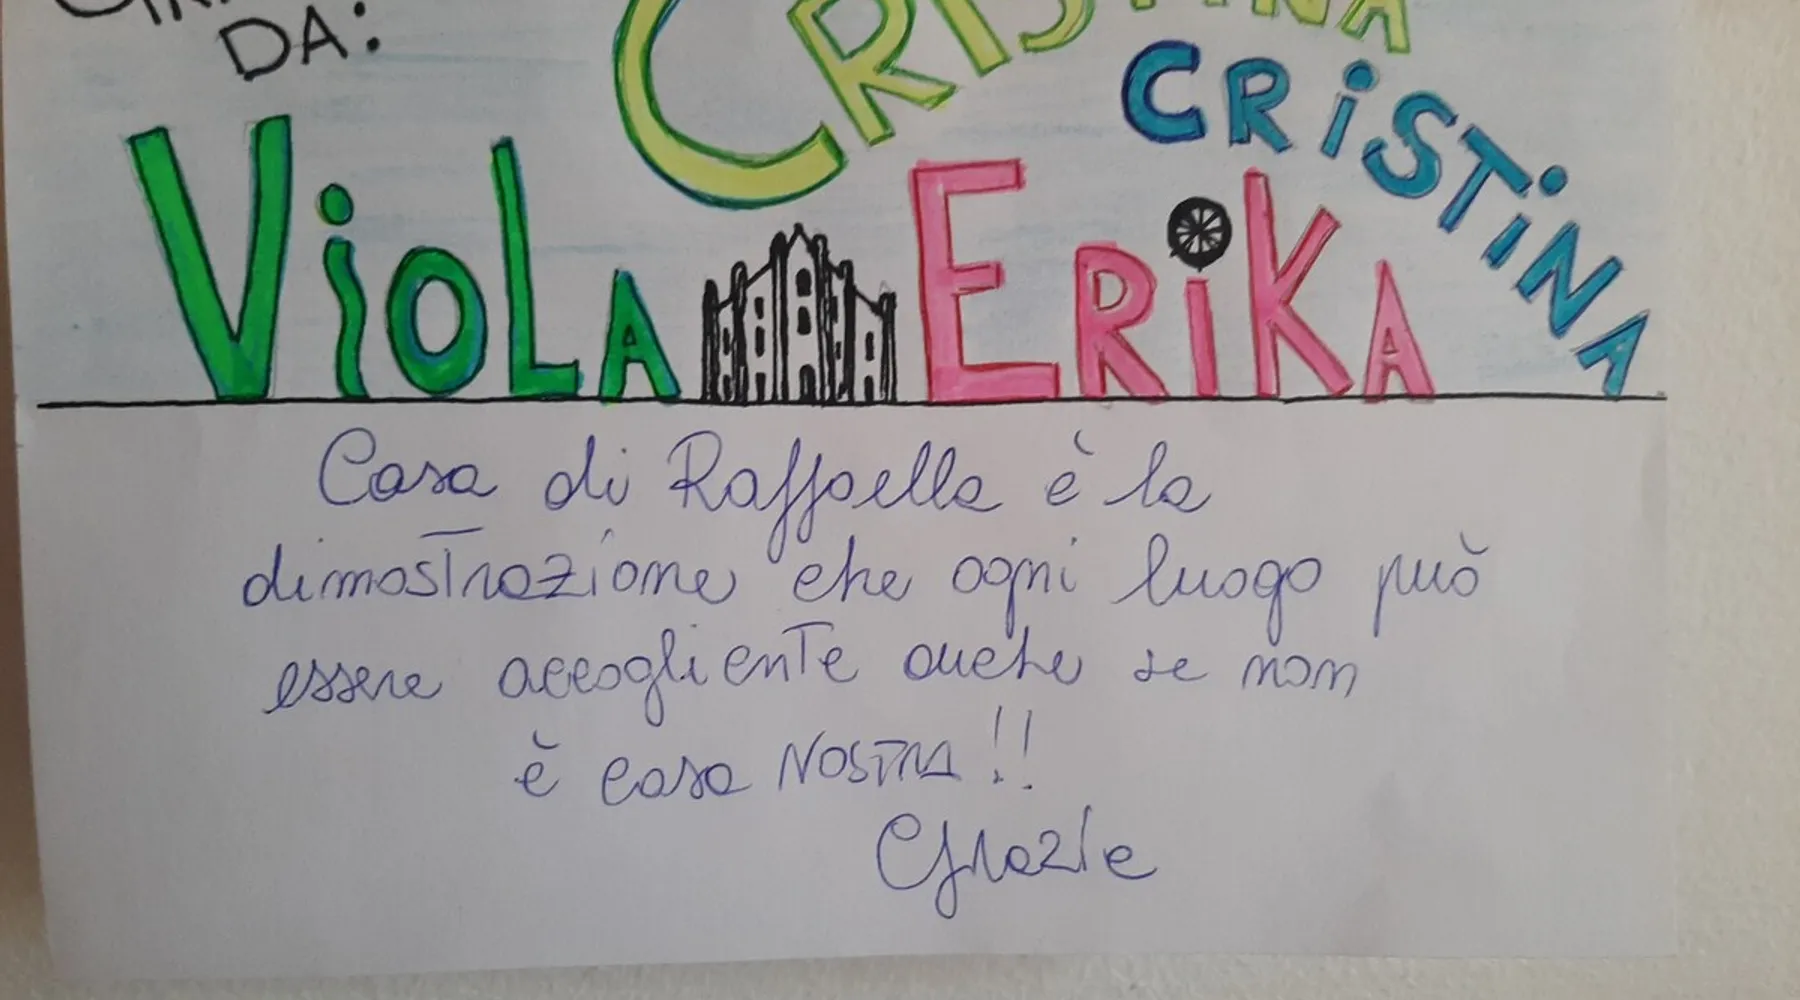 DA:
CRISTINA
CRISTINA
VIOLA ERIKA
Casa di Raffaella è la
dimostrazione che ogni luogo può
essere accogliente anche se non
è casa NOSTRA!!
Grazie